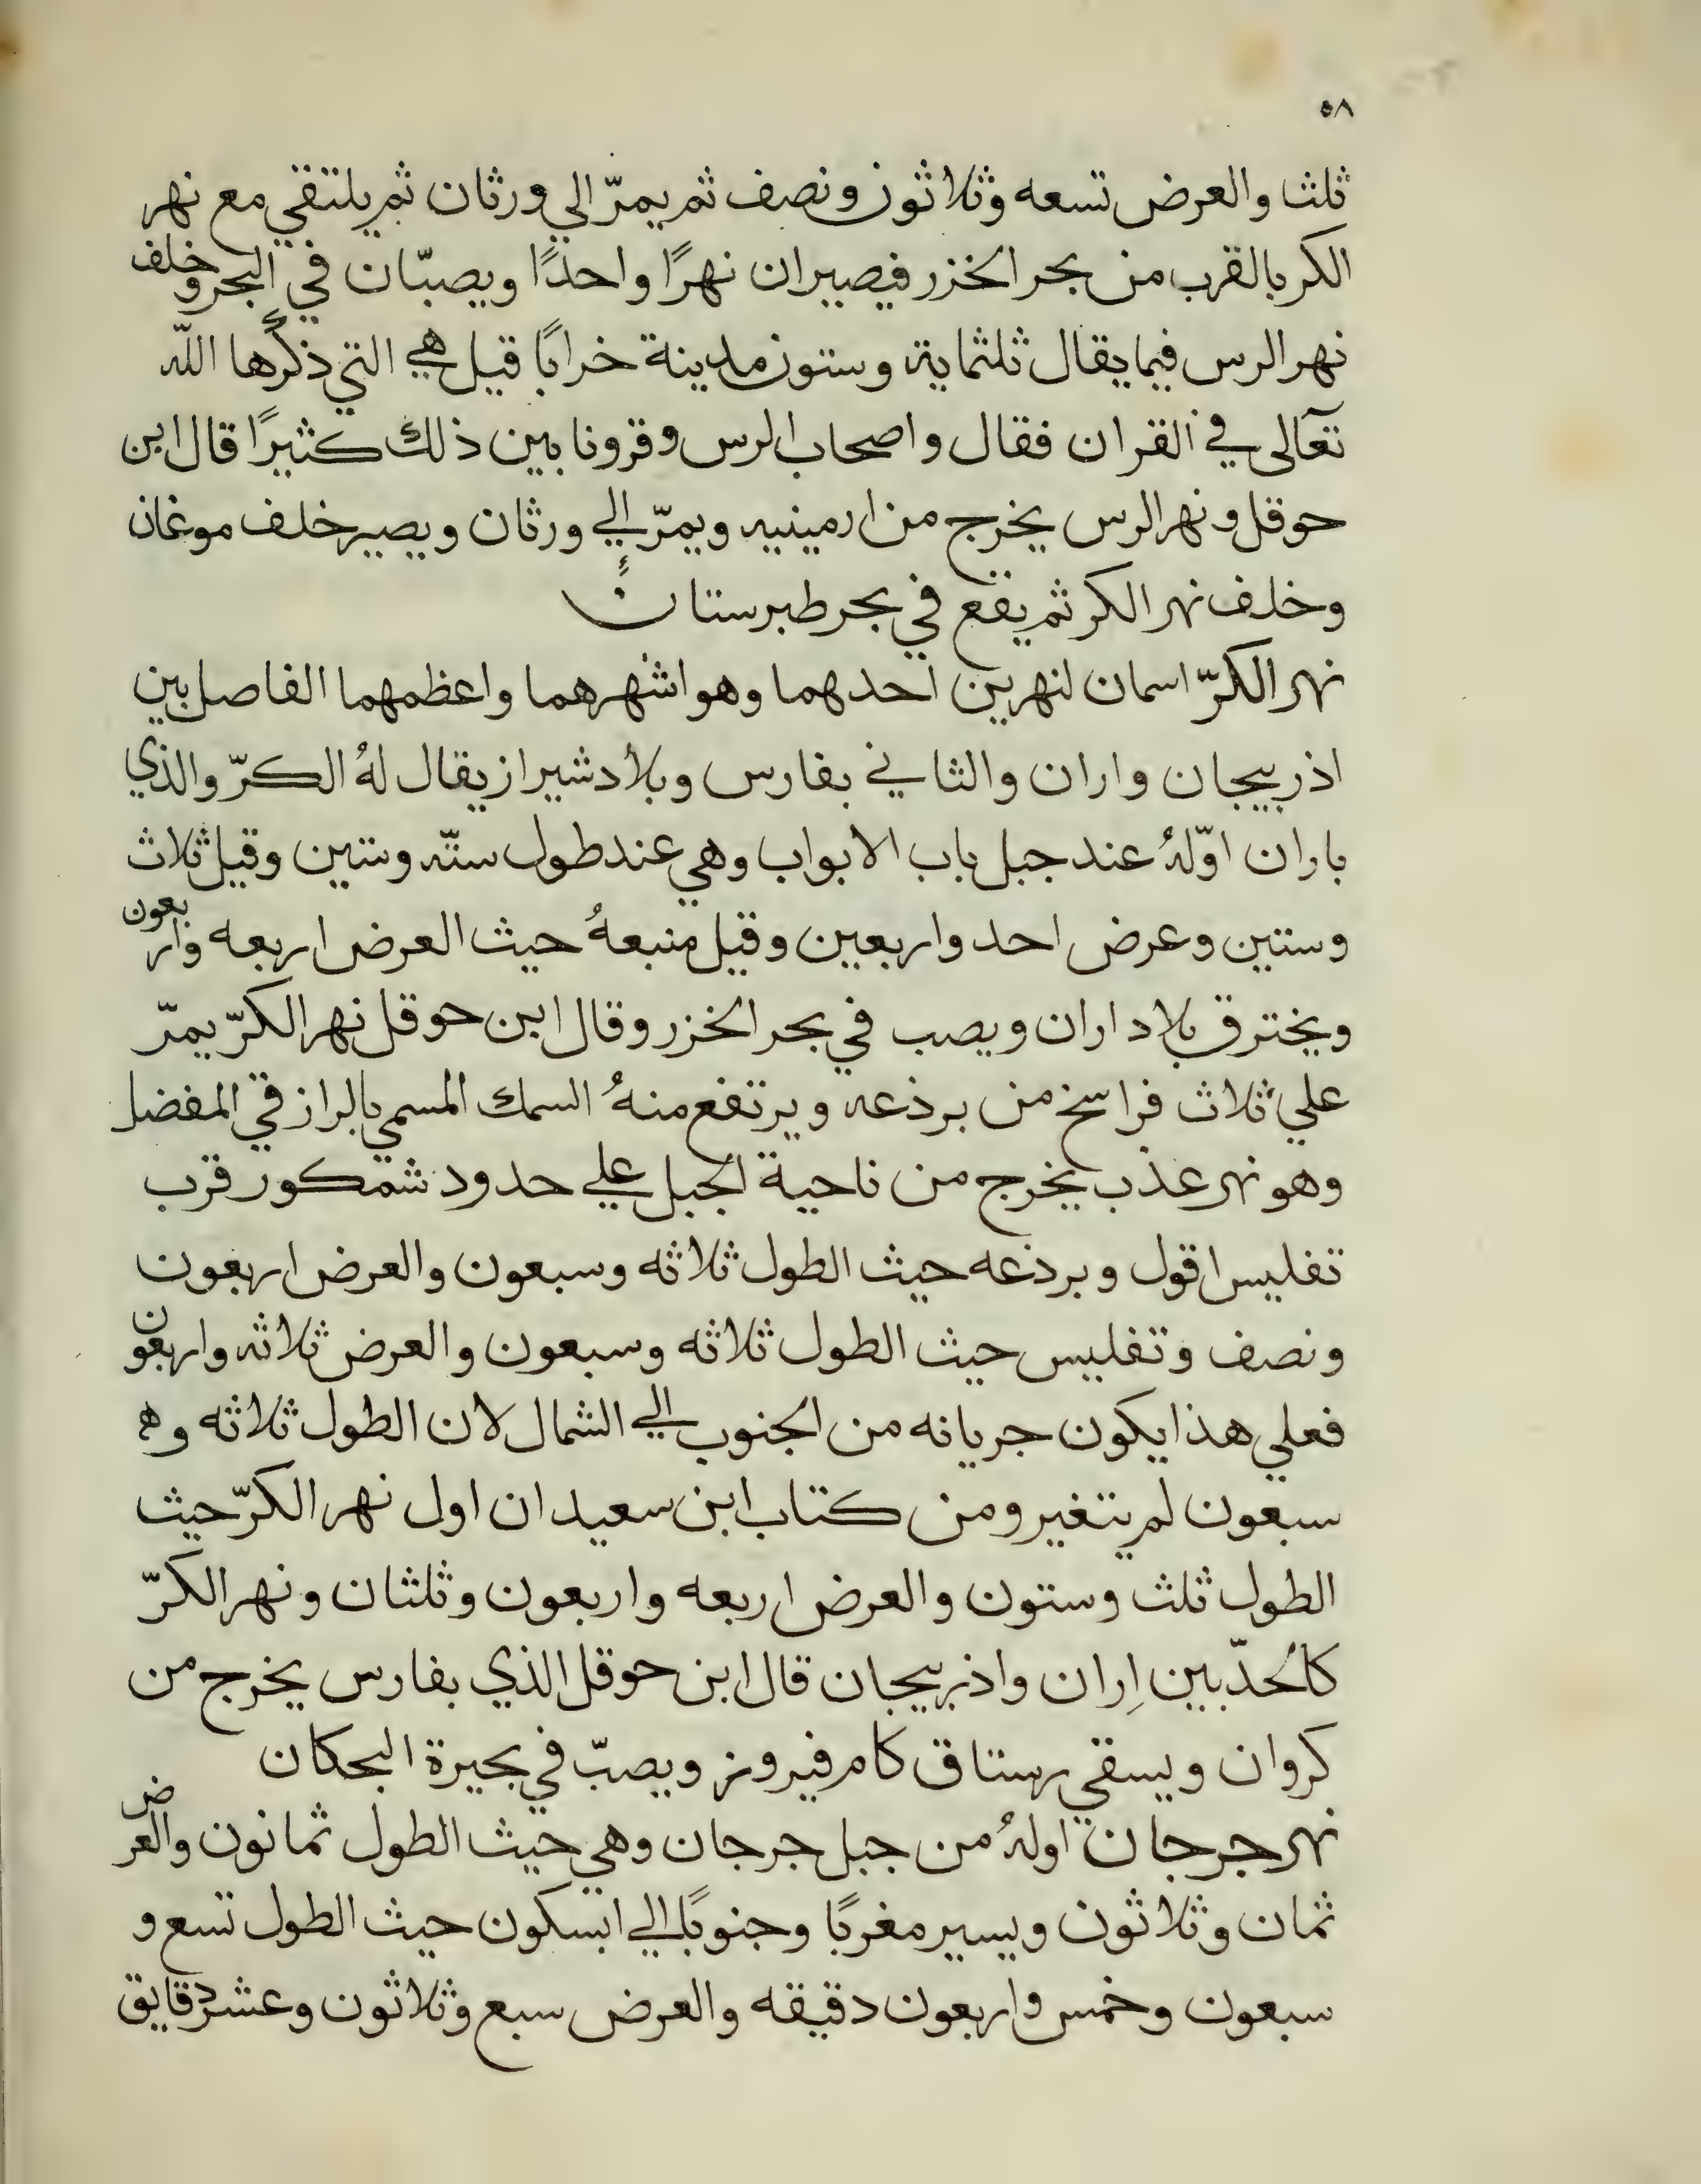 ٥٨
ثلثا والعرض تسعه وثلاثون ونصف ثم يمرّ الي ورثان ثم يلتقي مع نهر
الكر بالقرب من بحر الخزر فيصيران نهرًا واحدًا ويصبّان في البحر وخلف
نهر الرس فيما يقال ثلثماية وستون مدينة خرابًا قيل هي التي ذكرها الله
تعالى في القران فقال واصحاب الرس وقرونا بين ذلك كثيرًا قال ابن
حوقل ونهر الرس يخرج من ارمينيه ويمرّ الي ورثان ويصير خلف موغان
وخلف نهر الكر ثم يقع في بحر طبرستان
نهر الكرّ اسمان لنهرين احدهما وهو اشهرهما واعظمهما الفاصل بين
اذربيجان واران والثاني بفارس وبلاد شيراز يقال لهُ الكرّ والذي
باران اوّلهُ عند جبل باب الابواب وهي عند طول ستّه وستين وقيل ثلاث
وستين وعرض احد واربعين وقيل منبعهُ حيث العرض اربعه واربعون
ويخترق بلاد اران ويصب في بحر الخزر وقال ابن حوقل نهر الكرّ يمرّ
علي ثلاث فراسخ من برذعه ويرتفع منهُ السمك المسمي بالرازقي المفضل
وهو نهر عذب يخرج من ناحية الجبل علي حدود شمكور قرب
تفليس اقول وبرذعه حيث الطول ثلاثه وسبعون والعرض اربعون
ونصف وتفليس حيث الطول ثلاثه وسبعون والعرض ثلاثه واربعون
فعلي هذا يكون جريانه من الجنوب الي الشمال لان الطول ثلاثه وه
سبعون لم يتغير ومن كتاب ابن سعيد ان اول نهر الكرّ حيث
الطول ثلث وستون والعرض اربعه واربعون وثلثان ونهر الكرّ
كالحدّ بين اِران واذربيجان قال ابن حوقل الذي بفارس يخرج من
كروان ويسقي رستاق كام فيروز ويصبّ في بحيرة البحكان
نهر جرجان اولهُ من جبل جرجان وهي حيث الطول ثمانون والعرض
ثمان وثلاثون ويسير مغربًا وجنوبًا الي ابسكون حيث الطول تسع و
سبعون وخمس واربعون دقيقه والعرض سبع وثلاثون وعشر دقايق